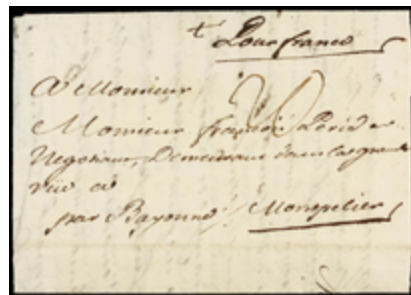 Pour france
20
A Monsieur
Monsieur françois
Negotiant, Demeurant dans la grande
rüe a
par Bayonne / Montpelier